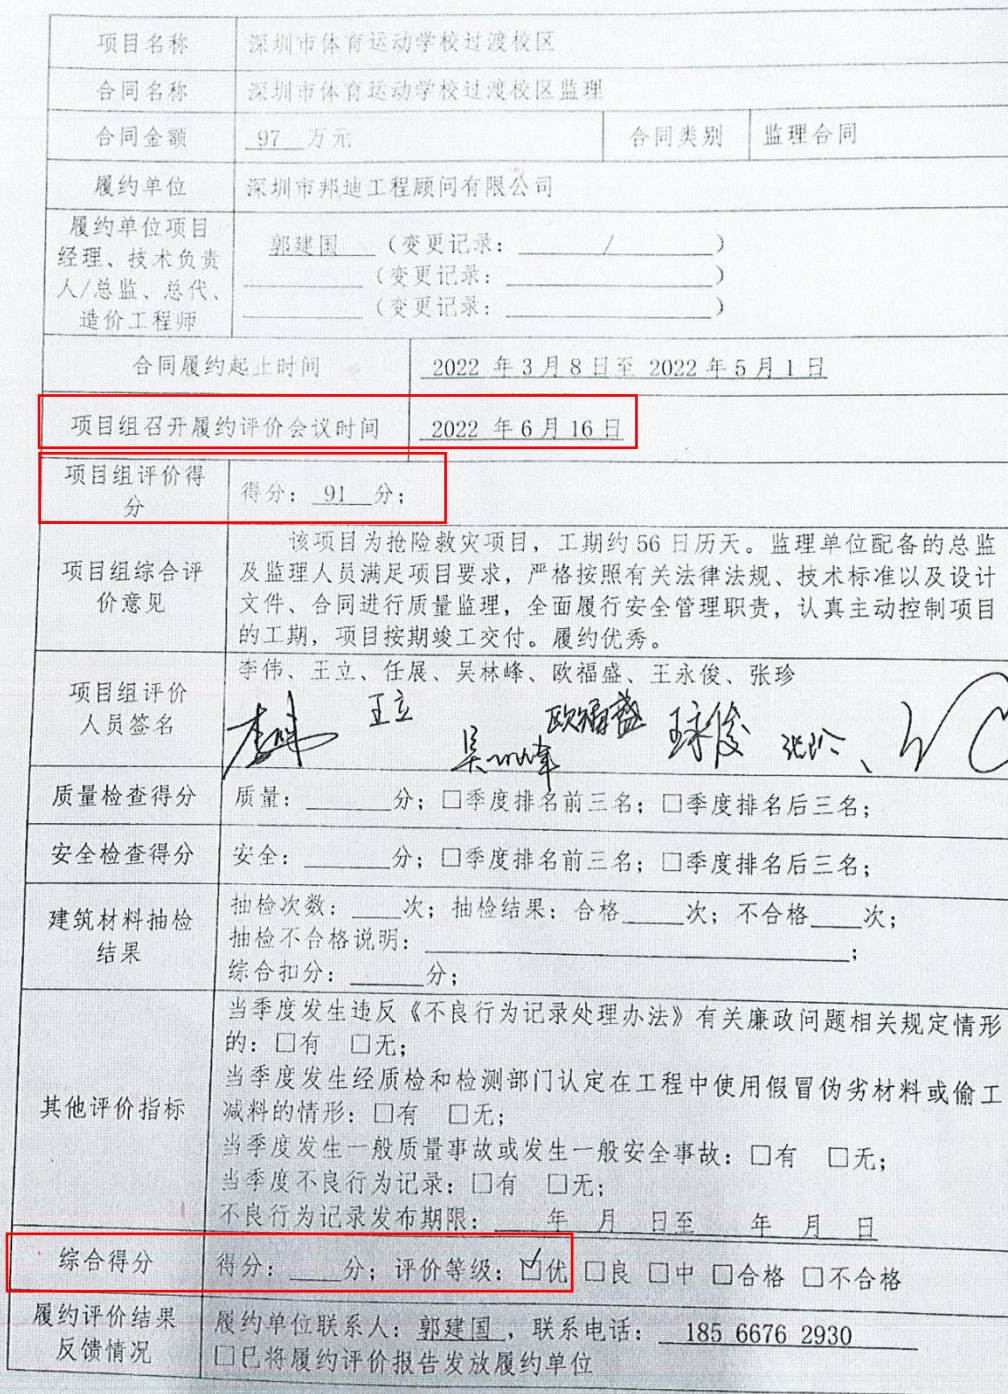 项目名称 深圳市体育运动学校过渡校区
合同名称 深圳市体育运动学校过渡校区监理
合同金额 97 万元 合同类别 监理合同
履约单位 深圳市邦迪工程顾问有限公司
履约单位项目
经理、技术负责
人/总监、总代、
造价工程师
郭建国 (变更记录: / )
(变更记录: )
(变更记录: )
合同履约起止时间 2022 年 3 月 8 日至 2022 年 5 月 1 日
项目组召开履约评价会议时间 2022 年 6 月 16 日
项目组评价得
分
得分: 91 分;
项目组综合评
价意见
该项目为抢险救灾项目, 工期约 56 日历天。监理单位配备的总监
及监理人员满足项目要求, 严格按照有关法律法规、技术标准以及设计
文件、合同进行质量监理, 全面履行安全管理职责, 认真主动控制项目
的工期, 项目按期竣工交付。履约优秀。
项目组评价
人员签名
李伟、王立、任展、吴林峰、欧福盛、王永俊、张珍
李伟 王立 吴林峰 欧福盛 王永俊 张珍、
质量检查得分 质量: ______分; □季度排名前三名; □季度排名后三名;
安全检查得分 安全: ______分; □季度排名前三名; □季度排名后三名;
建筑材料抽检
结果
抽检次数: ___次; 抽检结果: 合格____次; 不合格___次;
抽检不合格说明: ______________________________;
综合扣分: _____分;
其他评价指标
当季度发生违反《不良行为记录处理办法》有关廉政问题相关规定情形
的: □有 □无;
当季度发生经质检和检测部门认定在工程中使用假冒伪劣材料或偷工
减料的情形: □有 □无;
当季度发生一般质量事故或发生一般安全事故: □有 □无;
当季度不良行为记录: □有 □无;
不良行为记录发布期限: ___年 月 日至 年 月 日
综合得分 得分: ___分; 评价等级: ☑优 □良 □中 □合格 □不合格
履约评价结果
反馈情况
履约单位联系人: 郭建国 , 联系电话: 185 6676 2930
□已将履约评价报告发放履约单位